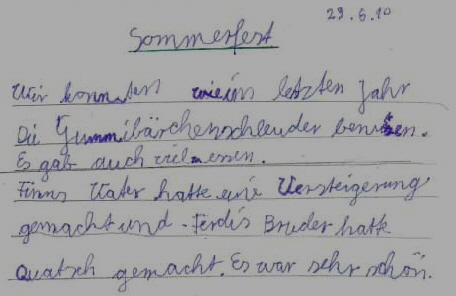 29.6.10
Sommerfest
Wir konnten wie im letzten Jahr
Die Gummibärchenschleuder benutzen.
Es gab auch viel essen.
Finns Vater hatte eine Versteigerung
gemacht und Ferdis Bruder hatte
Quatsch gemacht. Es war sehr schön.